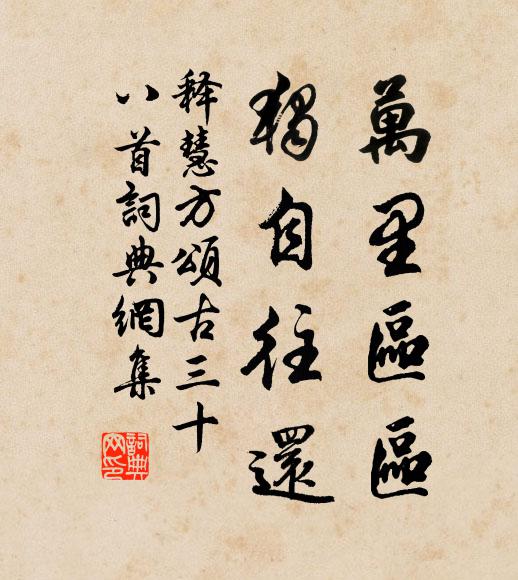 萬里區區
獨自往還
釋慧方頌古三十
八首詞典網集
詞典網印